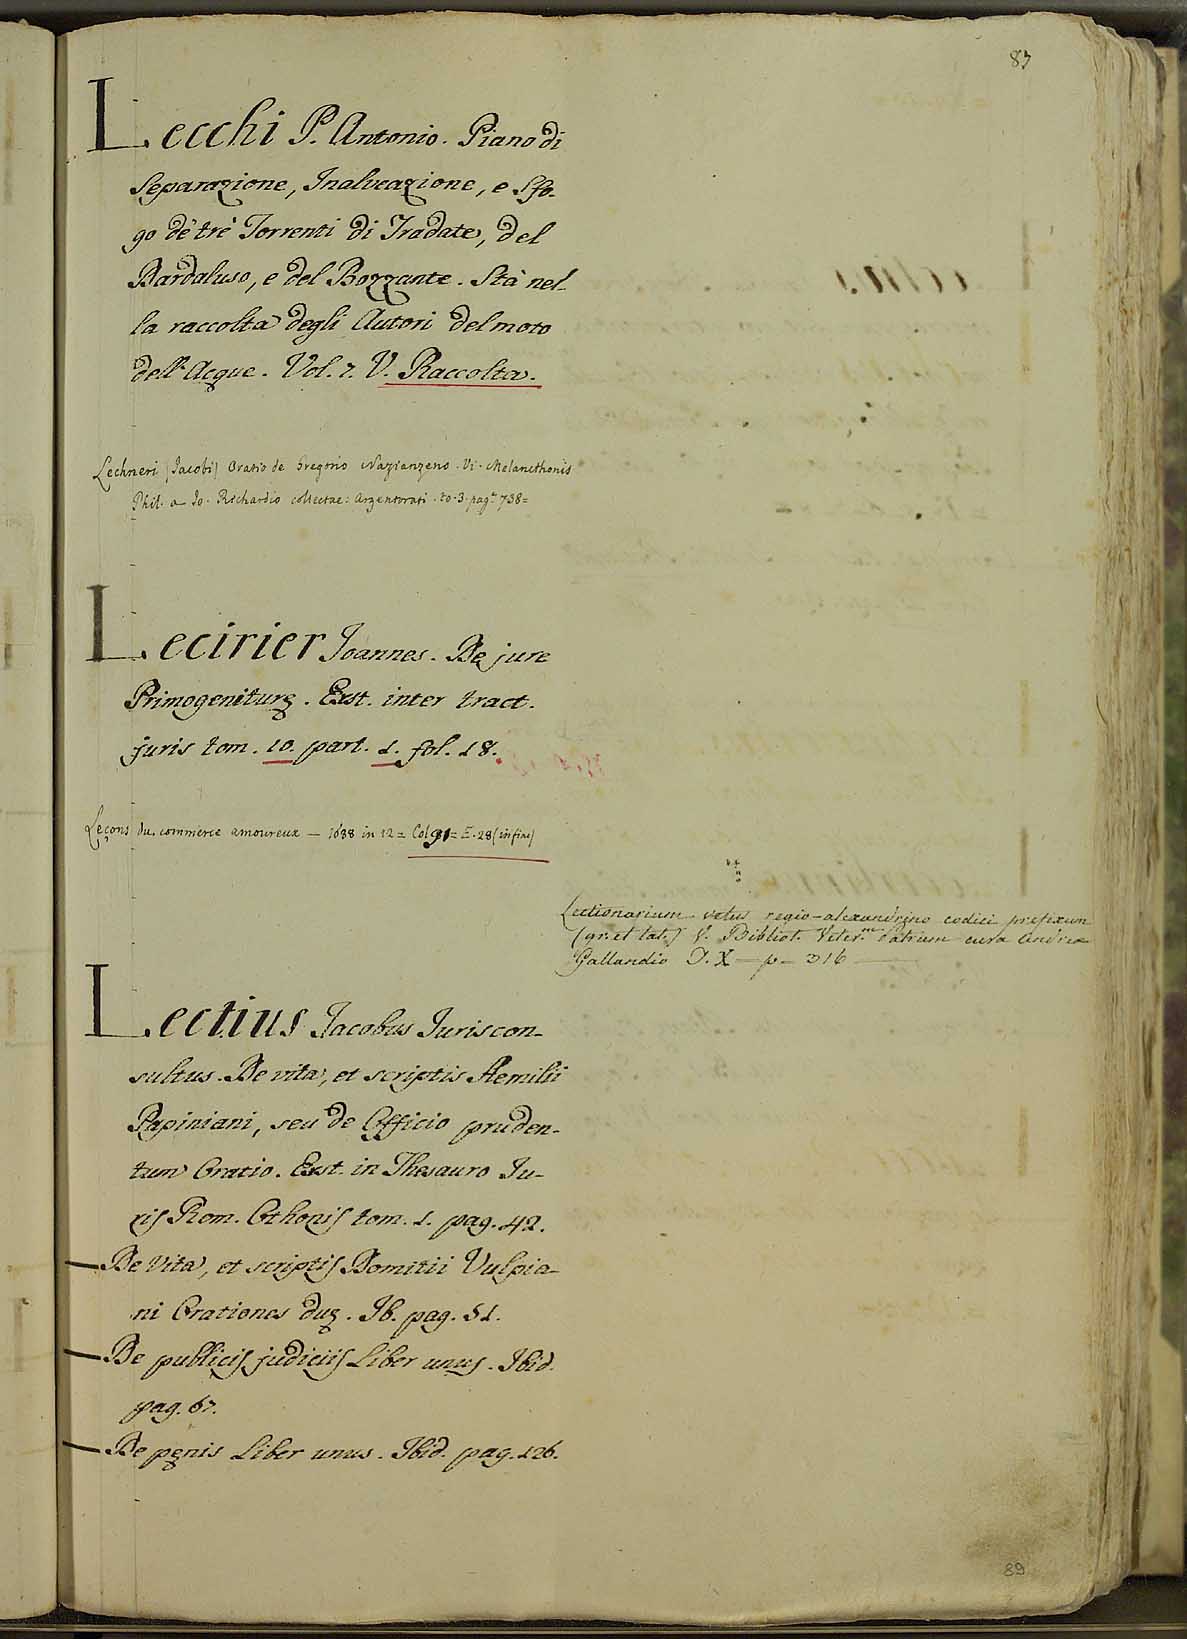 83
Lecchi P. Antonio. Piano di
Separazione, Inalveazione, e Sfo-
go de' tre Torrenti di Tradate, del
Bardaluso, e del Bozzante. Stà nel-
la raccolta degli Autori del moto
dell'Acque. Vol. 7. V. Raccolta.
Lechneri (Jacobi) Oratio de Gregorio Nazianzeno. Vi. Melancthonis
Phil. a Jo. Richardio collectae: Argentorati. to. 3. pag. 738=
Lecirier Joannes. De jure
Primogeniturę. Exst. inter tract.
juris tom. 10. part. 1. fol. 18.
Leçons du commerce amoureux — 1688 in 12 = Col 91 = E. 28 (in fine)
Lectionarium vetus regio-alexandrino codici prefixum
(gr. et lat.) V. Bibliot. Veter.m Patrum cura Andreæ
Gallandio T. X — p — 316 —
Lectius Jacobus Juriscon-
sultus. De vita, et scriptis Aemilii
Papiniani, seu de Officio pruden-
tum Oratio. Exst. in Thesauro Ju-
ris Rom. Othonis tom. 1. pag. 42.
— De Vita, et scriptis Domitii Vulpia-
ni Orationes duę. Ib. pag. 51.
— De publicis judiciis Liber unus. Ibid.
pag. 67.
— De pęnis Liber unus. Ibid. pag. 126.
89